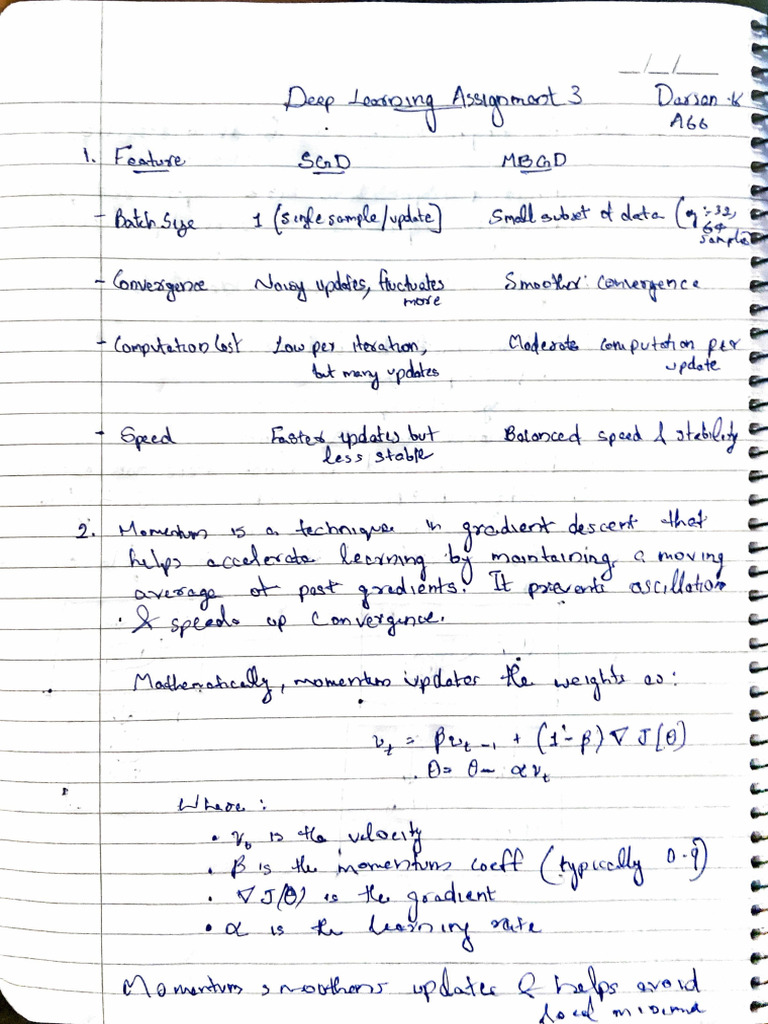 __/__/__
Deep Learning Assignment 3 Darsan .K
A66
1. Feature SGD MBGD
- Batch Size 1 (single sample/update] Small subset of data (eg:-32,
64
sample
- Convergence Noisy updates, fluctuates Smoother: convergence
more
- Computation Cost Low per iteration, Moderate computation per
but many updates update
- Speed Faster updates but Balanced speed & stability
less stable
2. Momentum is a technique in gradient descent that
helps accelerate learning by maintaining a moving
average of past gradients. It prevents oscillation
& speeds up convergence.
Mathematically, momentum updates the weights as:
v_t = βv_{t-1} + (1-β)∇J(θ)
θ = θ - αv_t
Where:
• v_t is the velocity
• β is the momentum coeff (typically 0.9)
• ∇J(θ) is the gradient
• α is the learning rate
Momentum smoothens updates & helps avoid
local minima